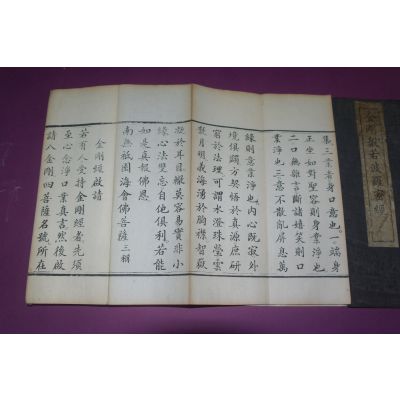 金剛般若波羅蜜經
嚴三業者身口意也一端身
正坐如對聖容則身業淨也
二口無雜言斷諸嬉笑則口
業淨也三意不散亂屏息萬
緣則意業淨也內心既寂外
境俱蠲方契悟於真源庶研
窮於法理可謂水澄珠瑩雲
散月明義海湧於胸襟智嶽
凝於耳目輒莫容易實非小
緣心法雙忘自他俱利若能
如是真報佛恩
南無祇園海會佛菩薩 三稱
金剛經啟請
若有人受持金剛經者先須
至心念淨口業真言然後啟
請八金剛四菩薩名號所在